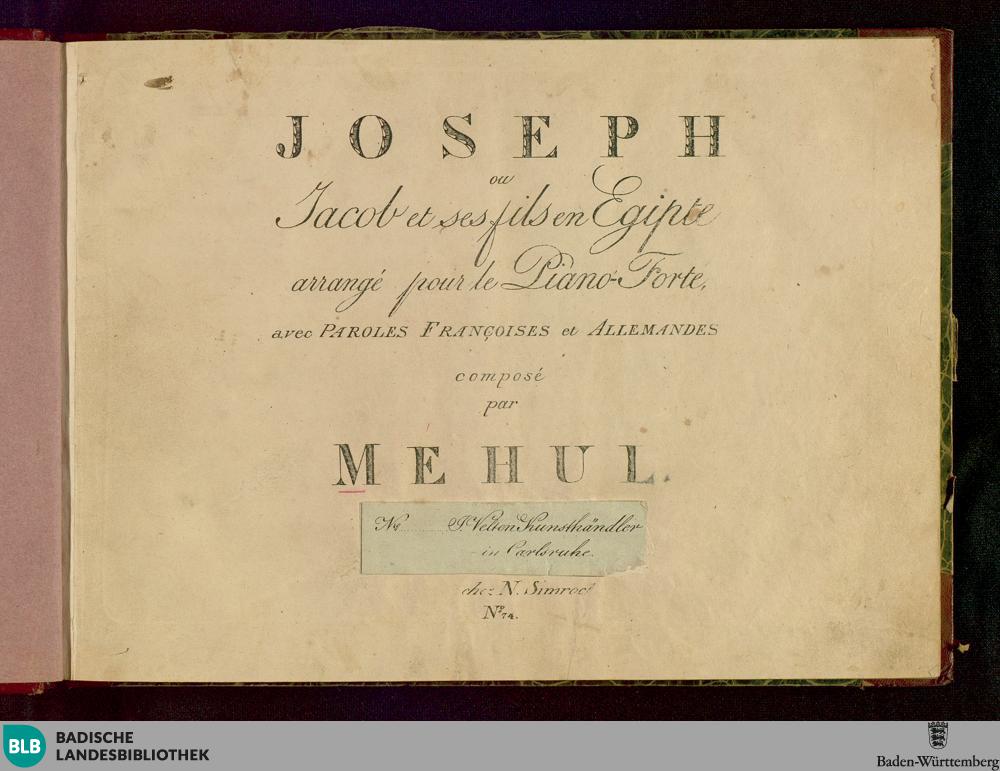 JOSEPH
ou
Jacob et ses fils en Egipte
arrangé pour le Piano-Forte,
avec PAROLES FRANÇOISES et ALLEMANDES
composé
par
MEHUL.
No J. Velten Kunsthändler
in Carlsruhe.
chez N. Simrock
No. 74.
BLB BADISCHE
LANDESBIBLIOTHEK
Baden-Württemberg